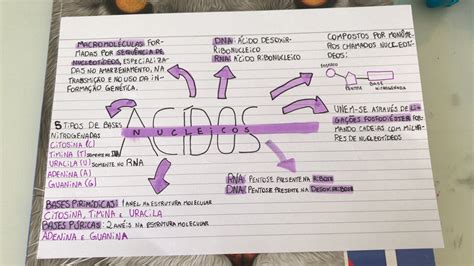 MACROMOLÉCULAS FOR-
MADAS POR SEQUÊNCIA DE
NUCLEOTÍDEOS, ESPECIALIZA-
DAS NO ARMAZENAMENTO, NA
TRANSMISSÃO E NO USO DA IN-
FORMAÇÃO GENÉTICA.
DNA: ÁCIDO DESOXIR-
RIBONUCLEICO
RNA: ÁCIDO RIBONUCLEICO
COMPOSTOS POR MONÔME-
ROS CHAMADOS NUCLEOTÍ-
DEOS:
FOSFATO
PENTOSE
BASE
NITROGENADA
ÁCIDOS
NUCLEICOS
UNEM-SE ATRAVÉS DE LI-
GAÇÕES FOSFODIÉSTER FOR-
MANDO CADEIAS COM MILHA-
RES DE NUCLEOTÍDEOS
5 TIPOS DE BASES
NITROGENADAS
CITOSINA (C)
TIMINA (T) SOMENTE NO DNA
URACILA (U) SOMENTE NO RNA
ADENINA (A)
GUANINA (G)
RNA: PENTOSE PRESENTE NA RIBOSE
DNA: PENTOSE PRESENTE NA DESOXIRRIBOSE
BASES PIRIMÍDICAS: 1 ANEL NA ESTRUTURA MOLECULAR
CITOSINA, TIMINA E URACILA
BASES PÚRICAS: 2 ANÉIS NA ESTRUTURA MOLECULAR
ADENINA E GUANINA